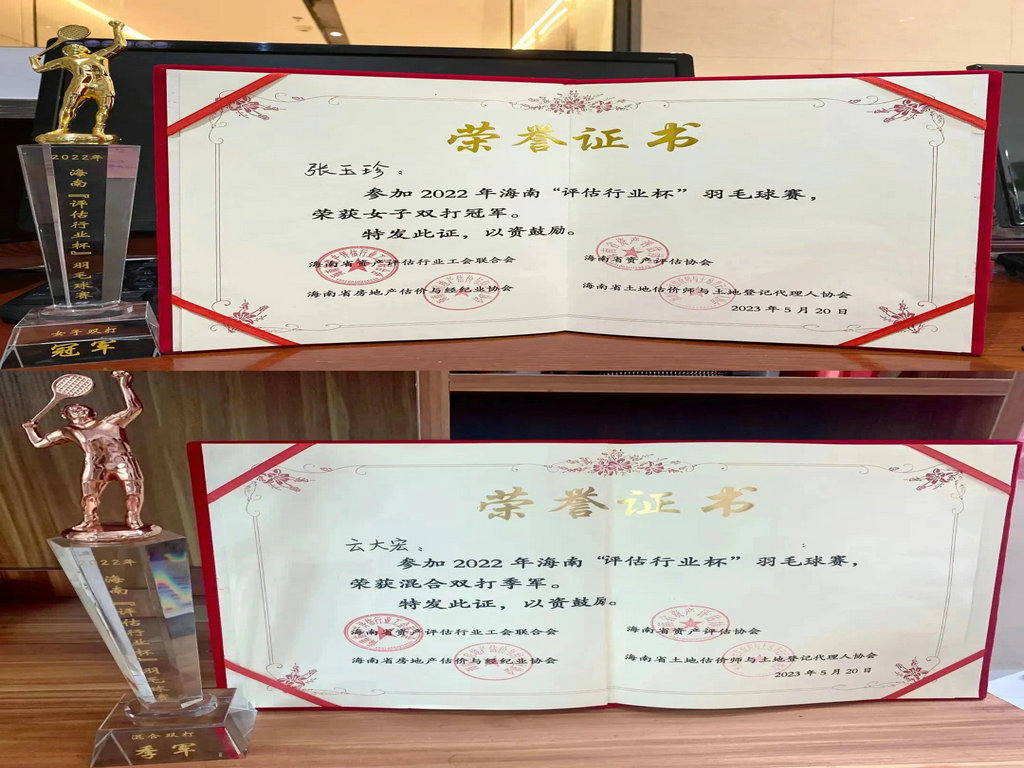 2022年
海南『评估行业杯』羽毛球赛
女子双打
冠军
荣誉证书
张玉珍：
参加 2022 年海南“评估行业杯”羽毛球赛，
荣获女子双打冠军。
特发此证，以资鼓励。
海南省资产评估行业工会联合会
海南省资产评估协会
海南省房地产估价与经纪业协会
海南省土地估价师与土地登记代理人协会
2023 年 5 月 20 日
2022年
海南『评估行业杯』羽毛球赛
混合双打
季军
荣誉证书
云大宏：
参加 2022 年海南“评估行业杯”羽毛球赛，
荣获混合双打季军。
特发此证，以资鼓励。
海南省资产评估行业工会联合会
海南省资产评估协会
海南省房地产估价与经纪业协会
海南省土地估价师与土地登记代理人协会
2023 年 5 月 20 日